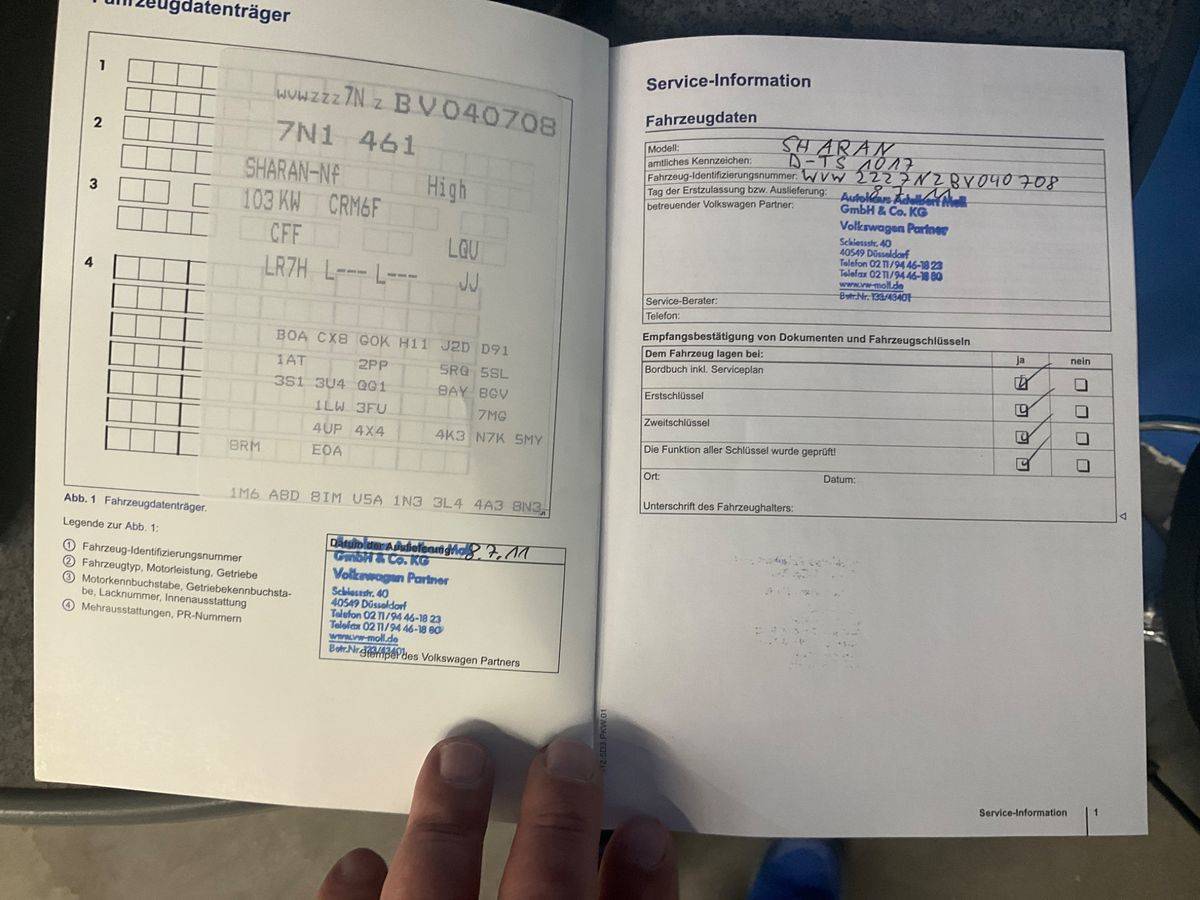 Fahrzeugdatenträger
1
2
3
4
WVWZZZ7N Z BV040708
7N1 461
SHARAN-Nf High
103 KW CRM6F
CFF LGU
LR7H L--- L--- JJ
BOA CX8 GOK H11 J2D D91
1AT 2PP 5RQ 5SL
3S1 3U4 QG1 8AY 8GV
1LW 3FU 7MG
4UP 4X4 4K3 N7K 5MY
8RM E0A
1M6 ABD 8IM U5A 1N3 3L4 4A3 8N3
Abb. 1 Fahrzeugdatenträger.
Legende zur Abb. 1:
1 Fahrzeug-Identifizierungsnummer
2 Fahrzeugtyp, Motorleistung, Getriebe
3 Motorkennbuchstabe, Getriebekennbuchsta-
be, Lacknummer, Innenausstattung
4 Mehrausstattungen, PR-Nummern
Datum der Auslieferung: 8.7.11
GmbH & Co. KG
Volkswagen Partner
Schiessstr. 40
40549 Düsseldorf
Telefon 02 11/94 46-18 23
Telefax 02 11/94 46-18 80
www.vw-moll.de
Betr.Nr. 133/43401
Stempel des Volkswagen Partners
Service-Information
Fahrzeugdaten
Modell: SHARAN
amtliches Kennzeichen: D-TS 1017
Fahrzeug-Identifizierungsnummer: WVW ZZZ7NZBV040708
Tag der Erstzulassung bzw. Auslieferung: 8.7.11
betreuender Volkswagen Partner: Autohaus Adelbert Moll
GmbH & Co. KG
Volkswagen Partner
Schiessstr. 40
40549 Düsseldorf
Telefon 02 11/94 46-18 23
Telefax 02 11/94 46-18 80
www.vw-moll.de
Betr.Nr. 133/43401
Service-Berater:
Telefon:
Empfangsbestätigung von Dokumenten und Fahrzeugschlüsseln
Dem Fahrzeug lagen bei: ja nein
Bordbuch inkl. Serviceplan
Erstschlüssel
Zweitschlüssel
Die Funktion aller Schlüssel wurde geprüft!
Ort: Datum:
Unterschrift des Fahrzeughalters:
Service-Information 1